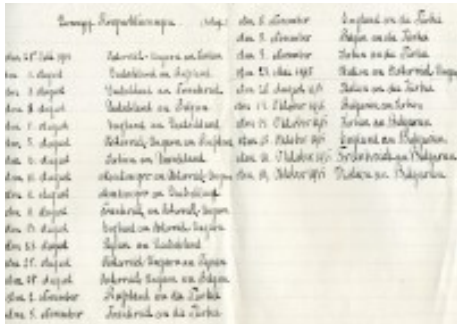 Kriegserklärungen
am 28 Juli 1914 Österreich-Ungarn an Serbien
am 1. August Deutschland an Russland
am 3. August Deutschland an Frankreich
am 4. August Deutschland an Belgien
am August England an Deutschland
am 5. August Österreich-Ungarn an Russland
am 6. August Serbien an Deutschland
am August Montenegro an Österreich-Ungarn
am August Montenegro an Deutschland
am 11. August Frankreich an Österreich-Ungarn
am August England an Österreich-Ungarn
am 23. August Japan an Deutschland
am 25. August Österreich-Ungarn an Japan
am 28. August Österreich-Ungarn an Belgien
am 2. November Russland an die Türkei
am 5. November Frankreich an die Türkei
am 5. November England an die Türkei
am November Belgien an die Türkei
am November Serbien an die Türkei
am 23. Mai 1915 Italien an Österreich-Ungarn
am August 1915 Italien an die Türkei
am Oktober 1915 Bulgarien an Serbien
am Oktober 1915 Serbien an Bulgarien
am Oktober 1915 England an Bulgarien
am Oktober 1915 Frankreich an Bulgarien
am Oktober 1915 Italien an Bulgarien